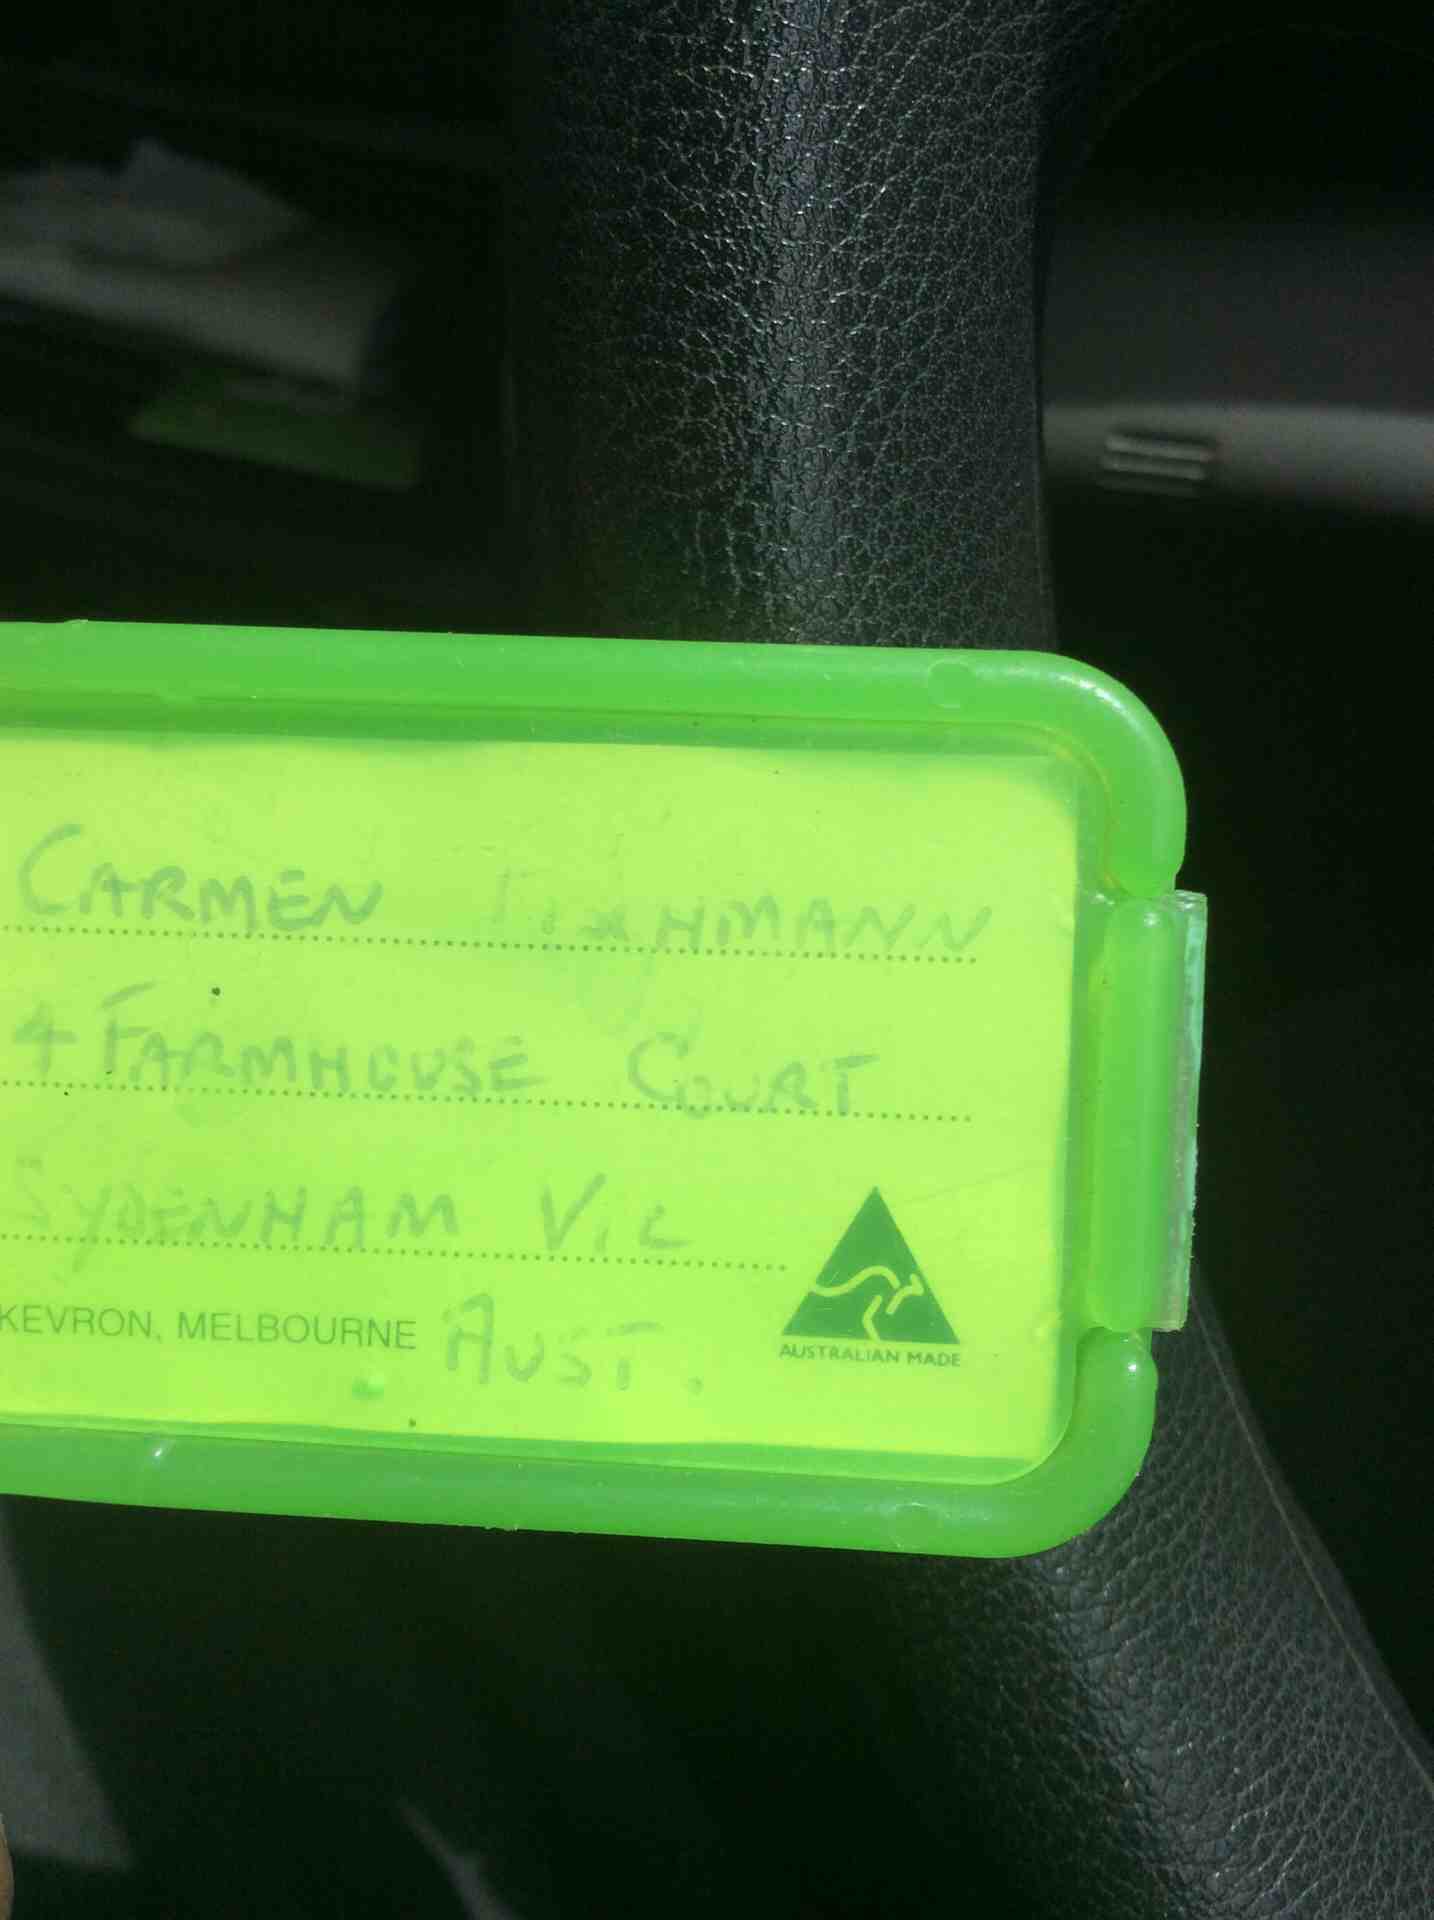 CARMEN
4 FARMHOUSE COURT
SYDENHAM VIC
KEVRON, MELBOURNE AUST.
AUSTRALIAN MADE